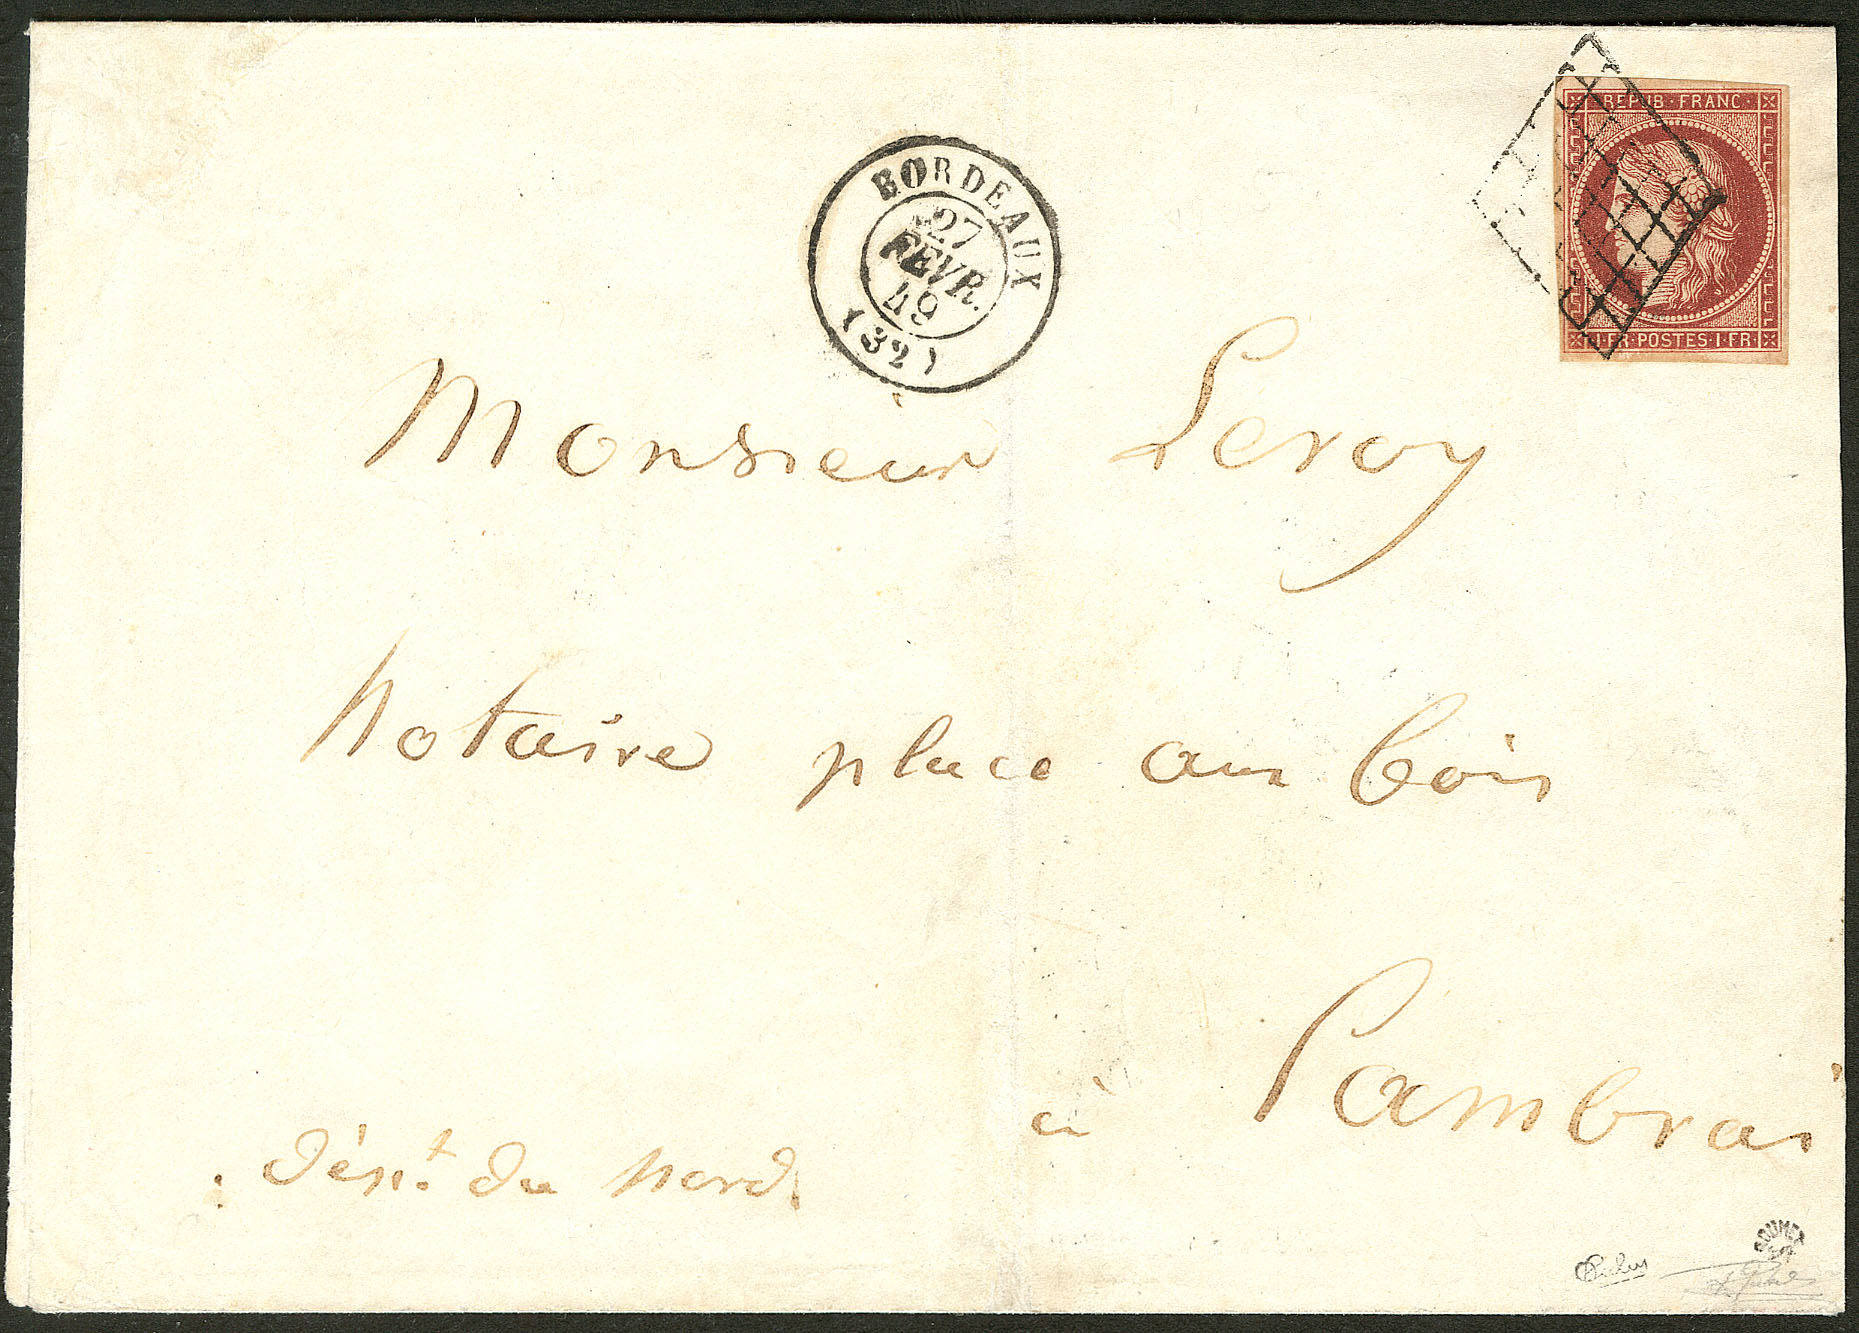 REPUB·FRANC·
1·FR·POSTES·1·FR·
BORDEAUX
27
FEVR.
49
(32)
Monsieur Leroy
Notaire place au bois
à Cambrai
Dépt. du Nord